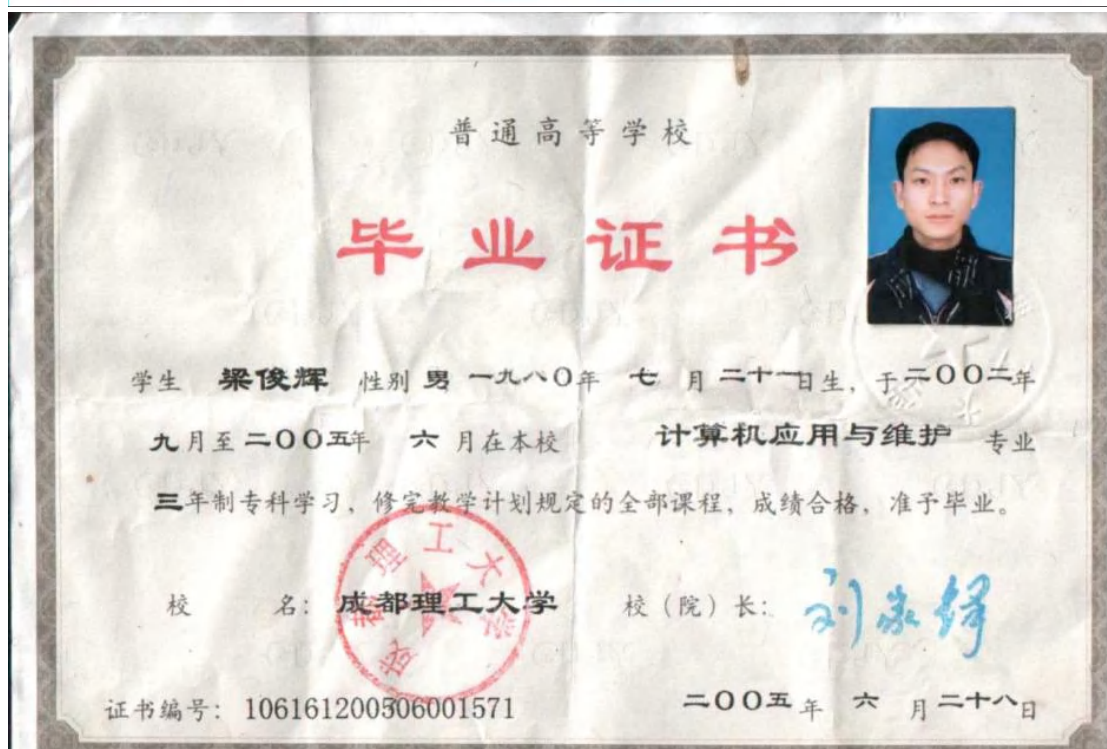 普通高等学校
毕业证书
学生 梁俊辉 性别 男 一九八〇年 七 月 二十一日生，于二〇〇二年
九月至二〇〇五年 六 月在本校 计算机应用与维护 专业
三年制专科学习，修完教学计划规定的全部课程，成绩合格，准予毕业。
成都理工大学
校 名：成都理工大学 校（院）长：刘家铎
证书编号：106161200506001571 二〇〇五年 六 月二十八日